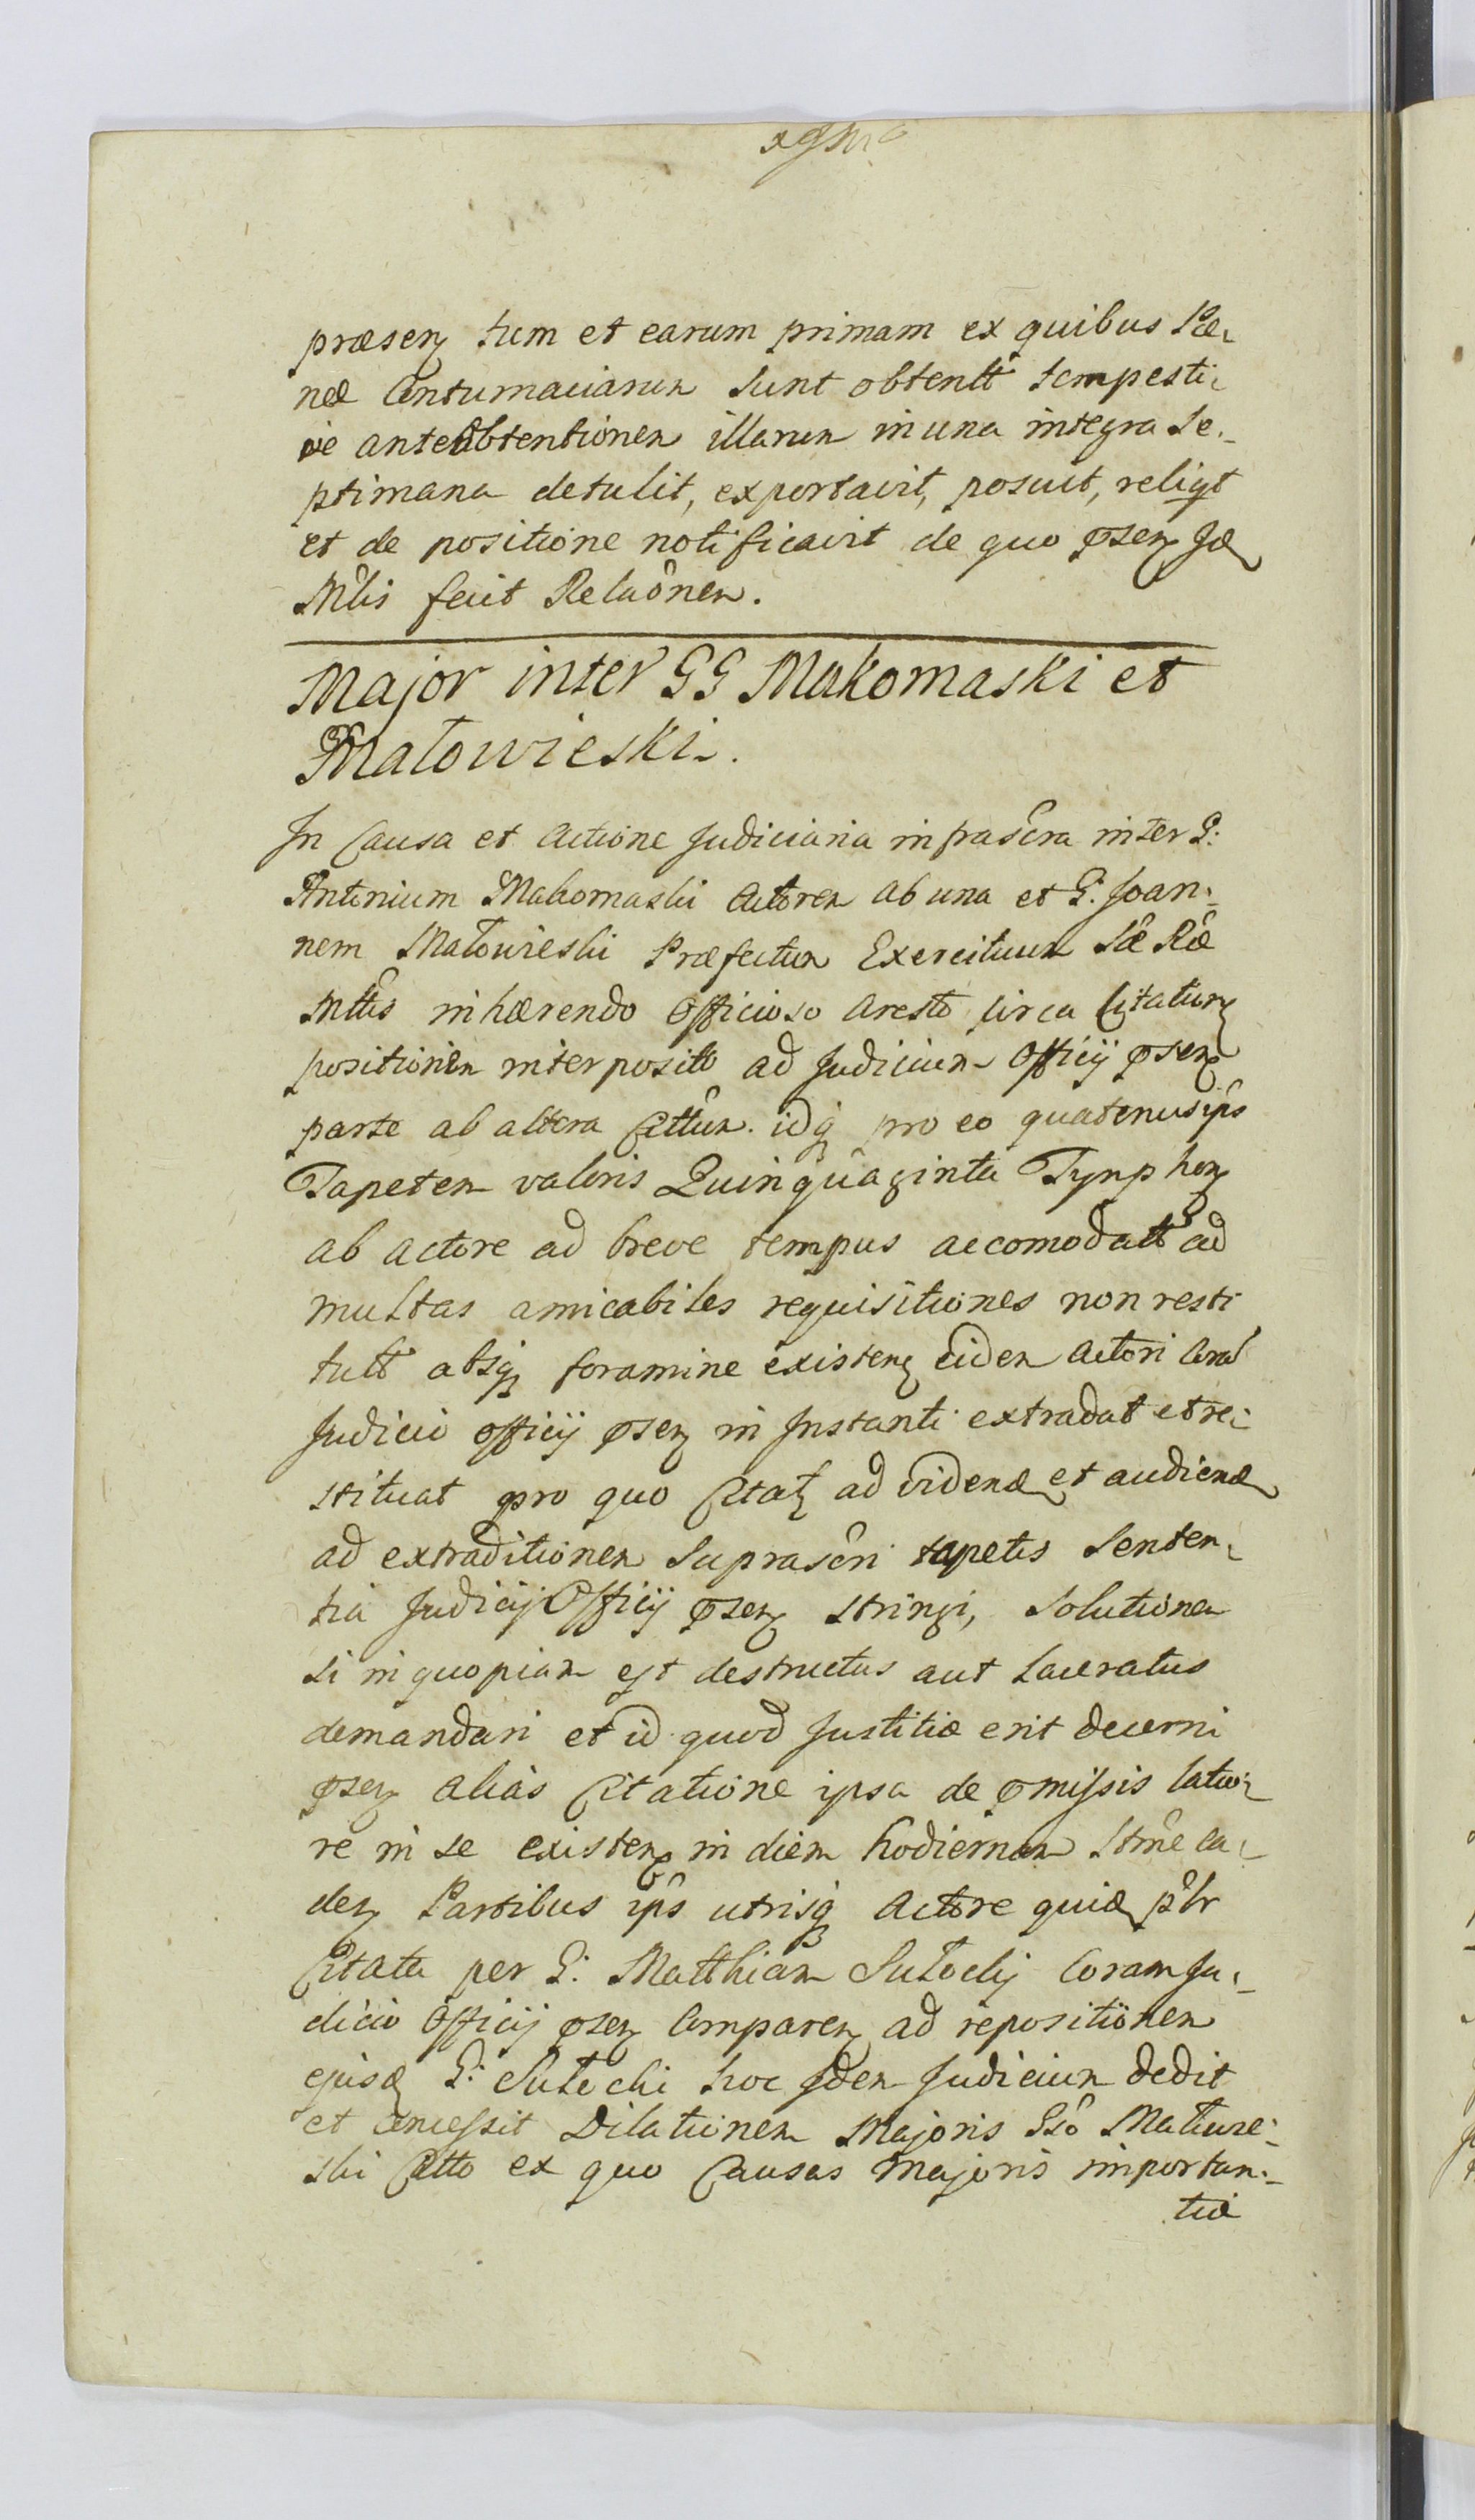 præsen tum et earum primam ex quibus Pœ-
næ Contumaciarum sunt obtentæ tempesti-
ve ante obtentionem illarum in una integra Se-
ptimana detulit, exportavit, posuit, reliqt
et de positione notificavit de quo psen Ide
Mlis fecit Relaonem.
Major inter GG Makomaski et
Małowieski.
In Causa et Actione Judiciaria infrascra inter G:
Antonium Makomaski Actorem ab una et G. Joan-
nem Małowieski Præfectum Exercituum Sæ Ræ
Mttis inhærendo Officioso Aresto circa Citatum
positionem interposito ad Judicium Officij psen
parte ab altera Cittum. idq pro eo quatenus ips
Tapetem valoris Quinquaginta Tynphon
ab actore ad breve tempus accomodatt ad
multas amicabiles requisitiones non resti
tutt absq foramine existen eidem Actori coram
Judicio officij psen in Instanti extradat et re-
stituat pro quo Citat ad vidend et audiend
ad extraditionem Suprascri tapetis Senten-
tia Judicij Officij psen stringi, Solutionem
si in quopiam est destructus aut laceratus
demandari et id quod Justitiæ erit decerni
psen alias Citatione ipsa de pmissis latio-
re in se existen in diem hodiernam Itme ca-
den Partibus ips utrisq Actore quid pbr
Citata per G. Matthiam Sułocki Coram Ju-
dicio Officij psen Comparen ad repositionem
ejusd G: Sułocki hoc Idem Judicium dedit
et concessit Dilationem Majoris Gso Małowie-
ski Citto ex quo Causas majoris importan-
tiæ